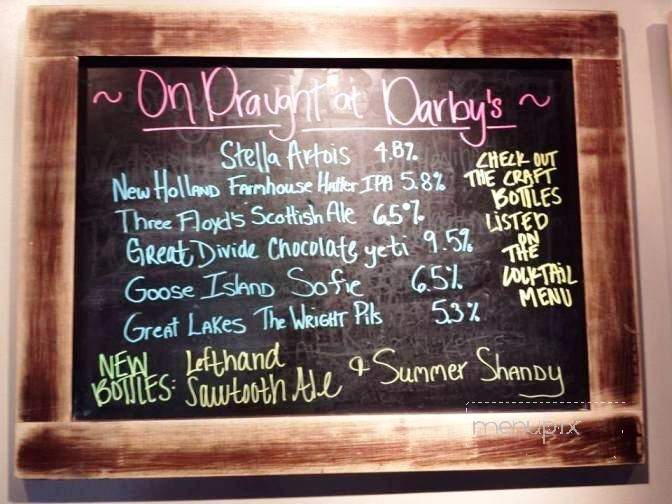 ~ On Draught at Darby's ~
Stella Artois 4.8%
New Holland Farmhouse Hatter IPA 5.8%
Three Floyd's Scottish Ale 6.5%
Great Divide Chocolate yeti 9.5%
Goose Island Sofie 6.5%
Great Lakes The Wright Pils 5.3%
CHECK OUT
THE CRAFT
BOTTLES
LISTED
ON
THE
COCKTAIL
MENU
NEW
BOTTLES:
Lefthand
Sawtooth Ale
& Summer Shandy
menupix